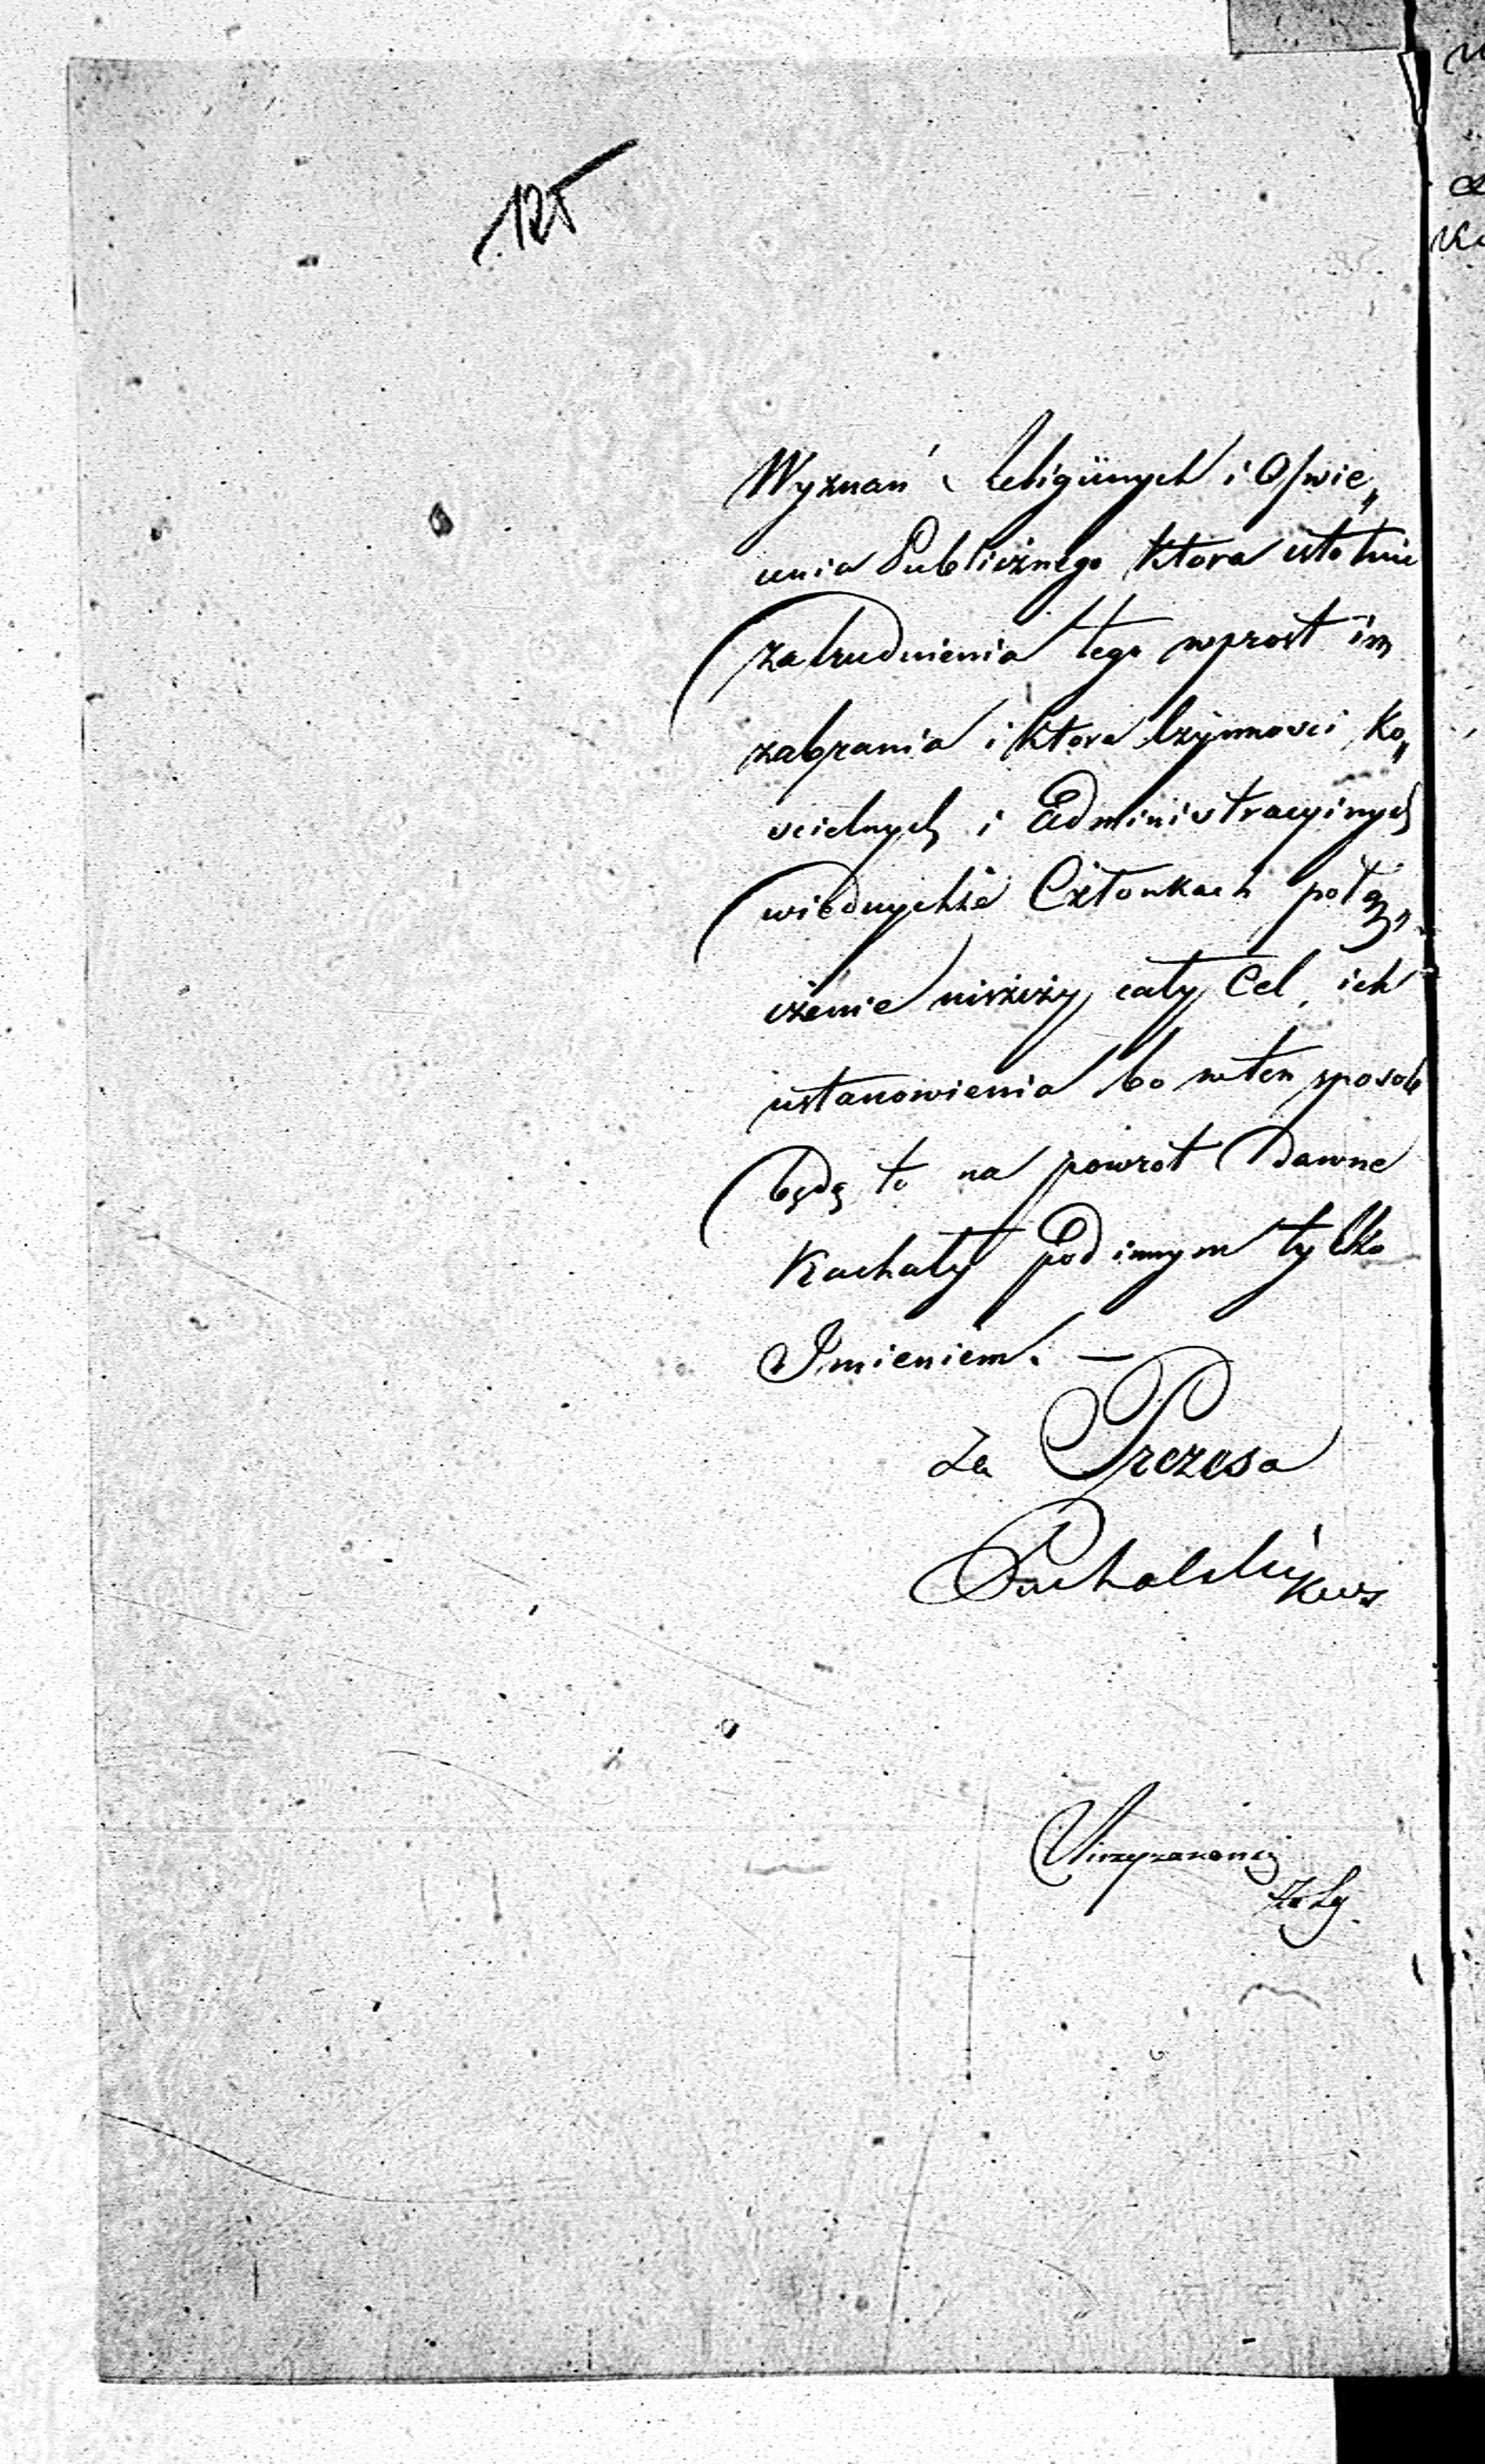 125
Wyznań Religiinych i Oswie„
cenia Publicznego ktora istotnie
zatrudnienia tego wprost im
zabrania i ktore Czynnosci Ko„
scielnych i Administracyinych
wiednychże Członkach połą„
czenie niszczy cały Cel ich
ustanowienia bo wten sposob
będą to na powrot dawne
Kachały pod innym tylko
Imieniem. —
Za Prezesa
Puchalski